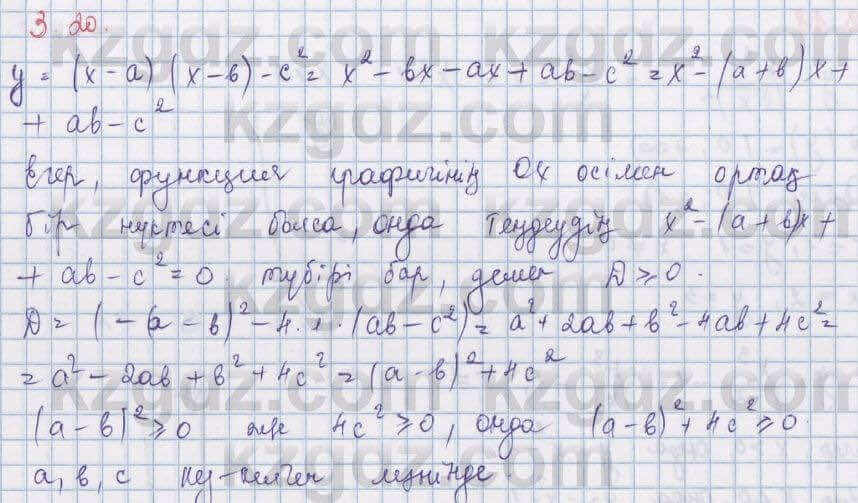 3.20.
y = (x-a)(x-в)-c² = x²-вx-ax+aв-c² = x²-(a+в)x+
+ aв-c²
Егер, функция графигінің OX осімен ортақ
бір нүктесі болса, онда теңдеудің x²-(a+в)x+
+ aв-c²=0 түбірі бар, демек D⩾0.
D = (-a-в)²-4·1·(aв-c²) = a²+2aв+в²-4aв+4c²=
= a²-2aв+в²+4c² = (a-в)²+4c²
(a-в)²⩾0 және 4c²⩾0, онда (a-в)²+4c²⩾0
a, в, c кез-келген мәнінде.
kzgdz.com
kzgdz.com
kzgdz.com
kzgdz.com
kzgdz.com